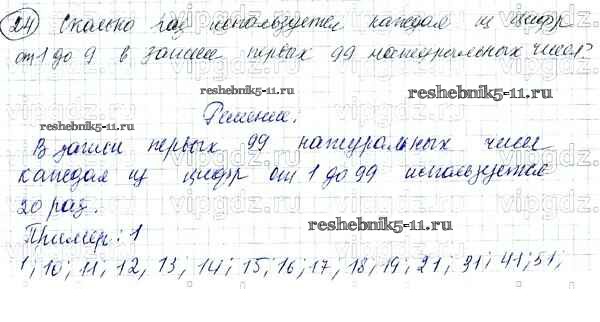 24) Сколько раз используется каждая из цифр
от 1 до 9 в записи первых 99 натуральных чисел?
reshebnik5-11.ru
Решение.
reshebnik5-11.ru
В записи первых 99 натуральных чисел
каждая из цифр от 1 до 99 используется
20 раз.
reshebnik5-11.ru
Пример: 1
1; 10; 11; 12, 13; 14; 15; 16; 17; 18; 19; 21; 31; 41; 51;